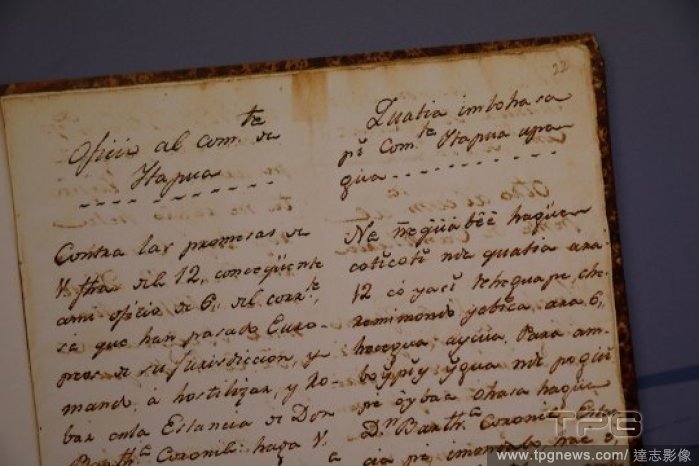 22
Oficio al com.te de
Itapua
Contra las promesas de
V fha. del 12, conseqüente
ami oficio de 6, del corr.te,
sé que han pasado Euro-
peos de su Jurisdiccion, y
mand. à hostilizar, y Ro-
bar en la Estancia de Don
Barth.e Coronil: haga V.
Quatia imbohasa
pĩ Com.te Itapua upa-
gua
Na
cotĩcotĩ nde quatia ara
12 có yacĩ rehegua pe che
remimondo ara 6,
hecegua, aycuâ. Para am-
boÿpĩÿ ÿgua nde poguĩ
pe oybae ohasa hagüe
D.n Barth.e Coronil, Esta-
TPG
www.tpgnews.com/達志影像